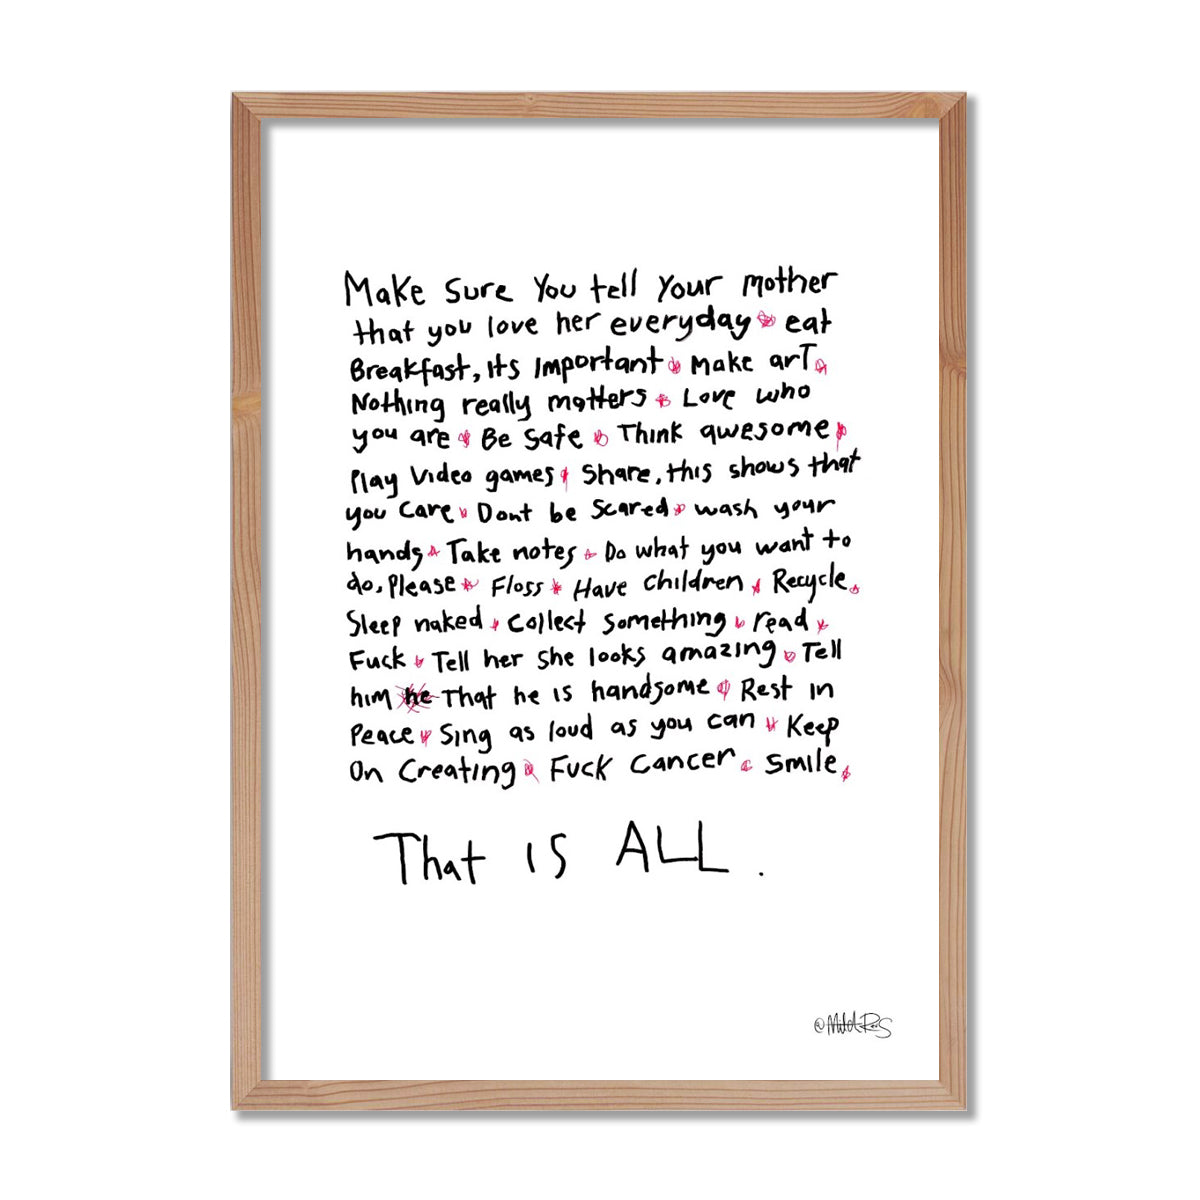 Make Sure You tell Your mother
that you love her everyday eat
Breakfast, its Important Make arT
Nothing really matters Love who
you are Be Safe Think awesome
Play Video games Share, this shows that
you Care Dont be Scared wash your
hands Take notes Do what you want to
do, Please Floss Have children Recycle
Sleep naked Collect Something read
Fuck Tell her She looks amazing Tell
him he That he is handsome Rest in
Peace Sing as loud as you can Keep
On Creating Fuck Cancer Smile
That IS ALL.